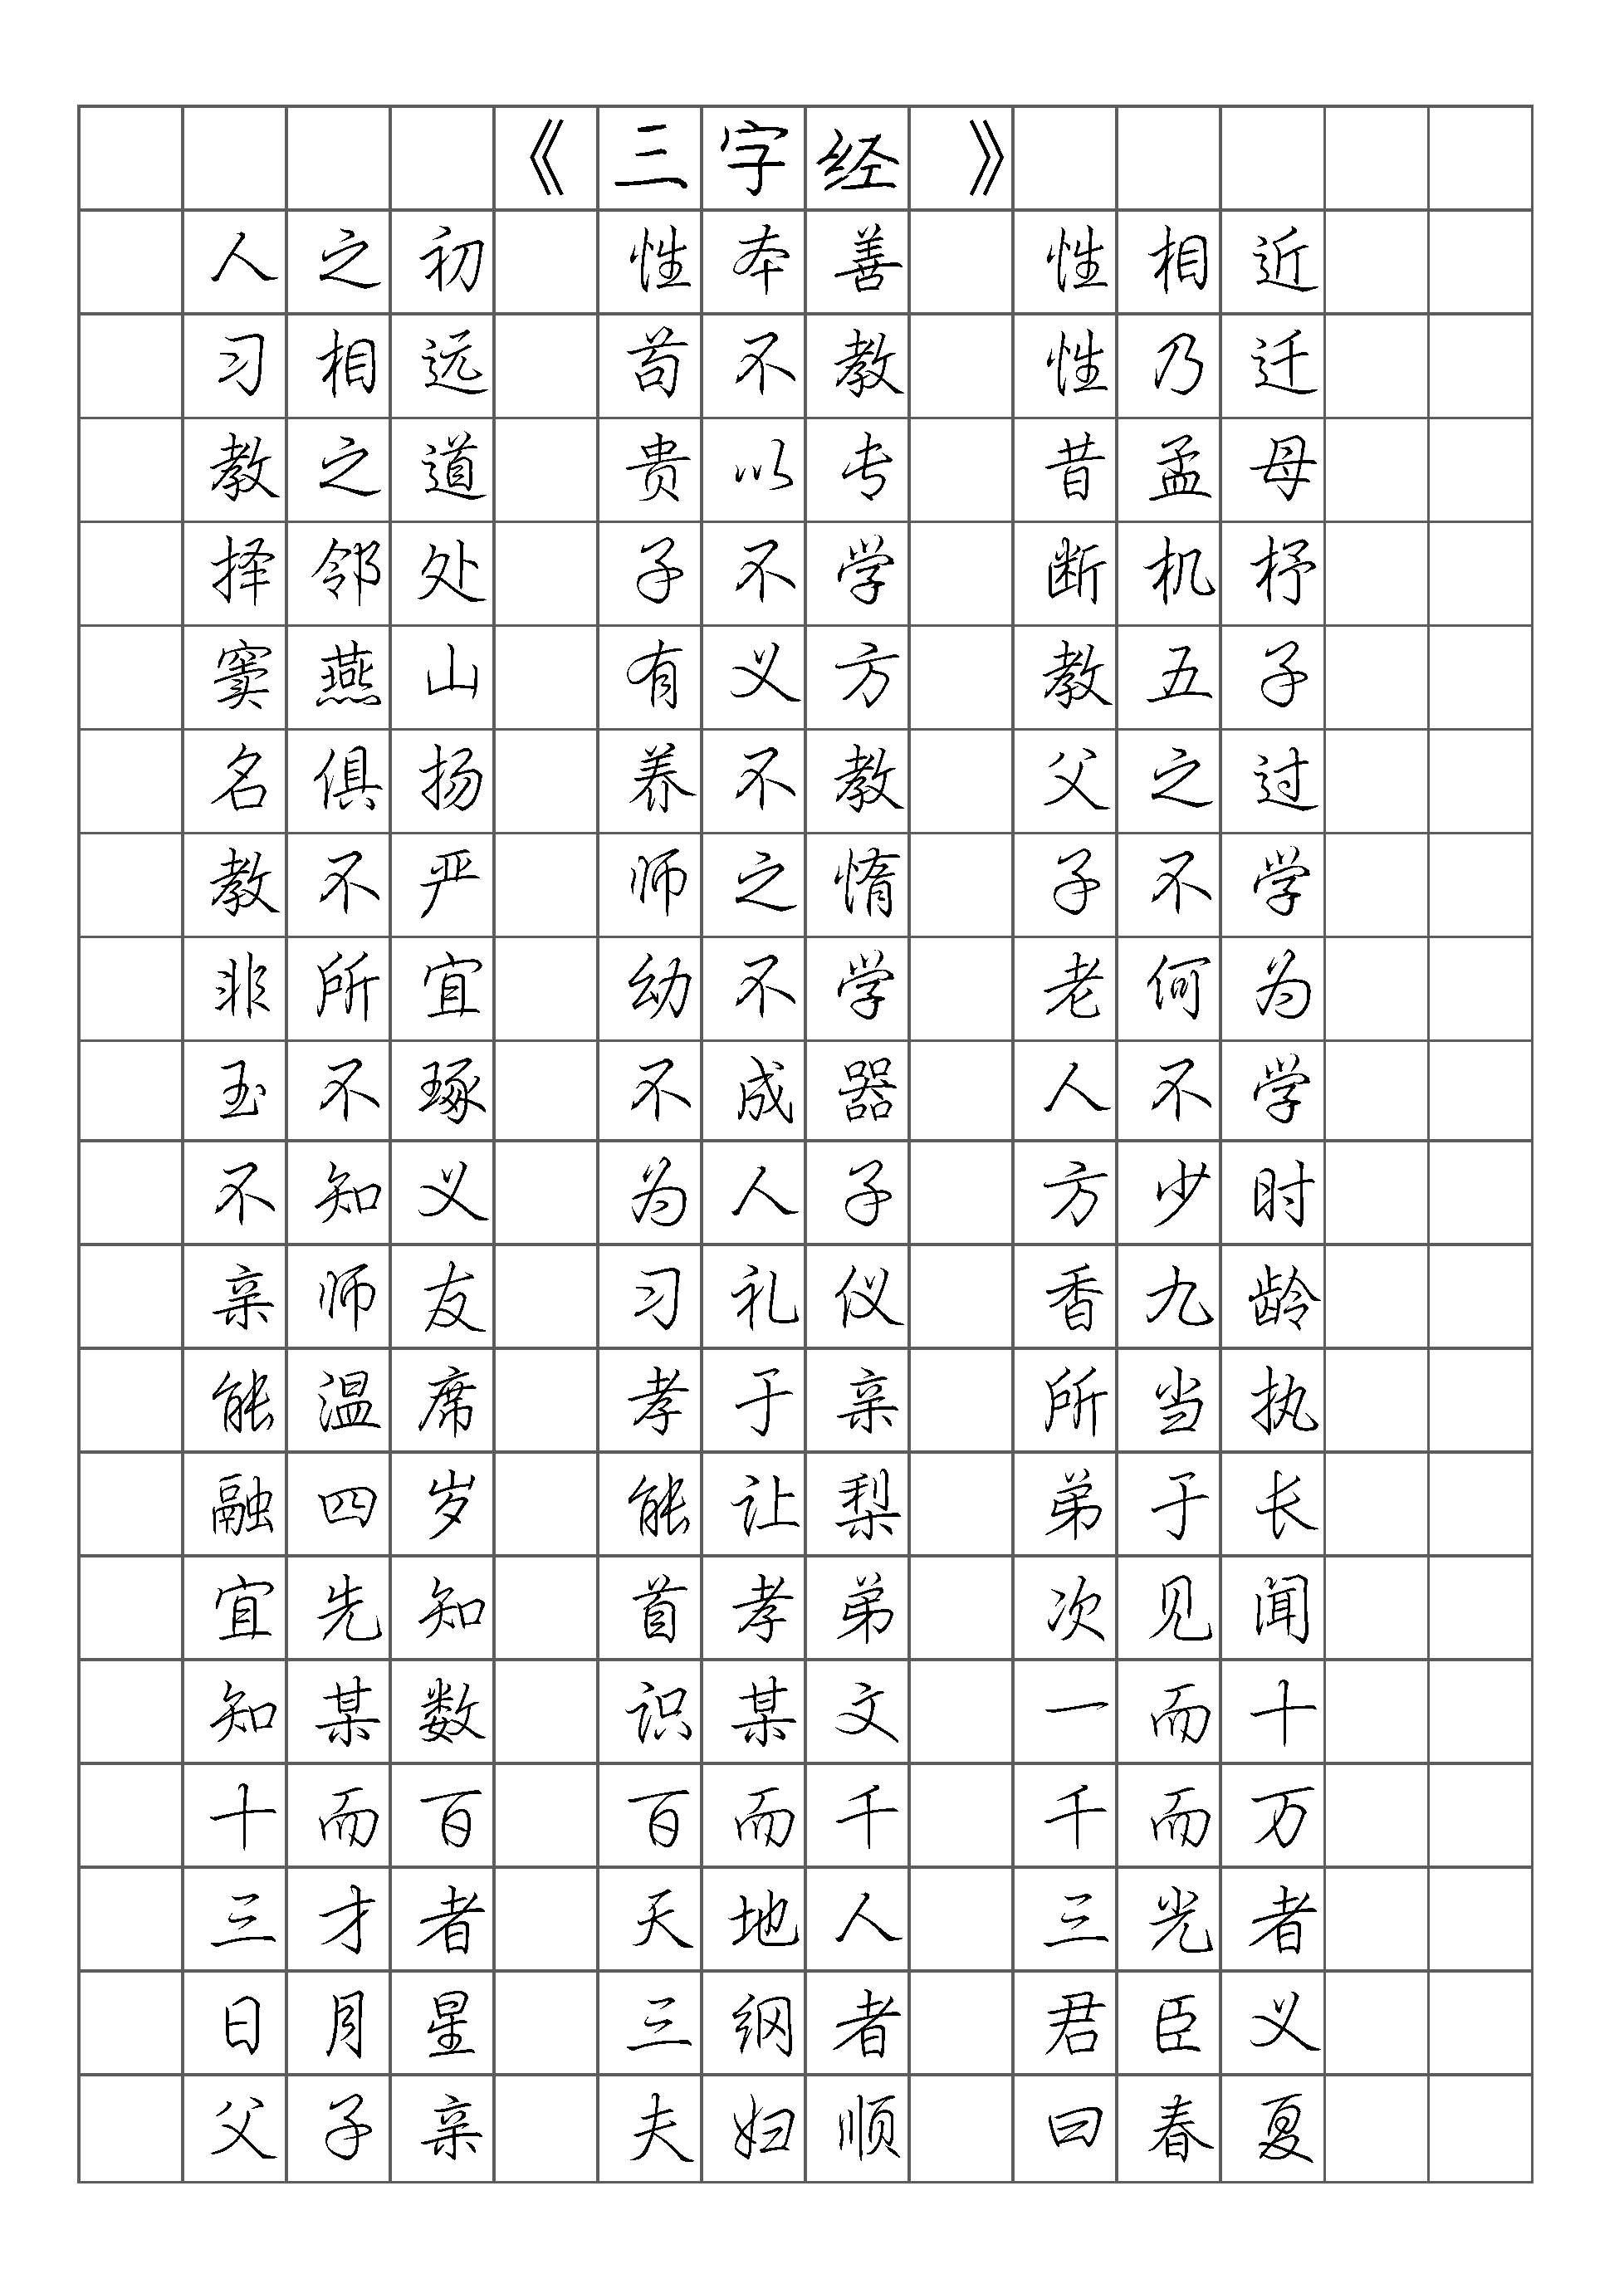 《三字经》
人之初 性本善 性相近
习相远 苟不教 性乃迁
教之道 贵以专 昔孟母
择邻处 子不学 断机杼
窦燕山 有义方 教五子
名俱扬 养不教 父之过
教不严 师之惰 子不学
非所宜 幼不学 老何为
玉不琢 不成器 人不学
不知义 为人子 方少时
亲师友 习礼仪 香九龄
能温席 孝于亲 所当执
融四岁 能让梨 弟于长
宜先知 首孝弟 次见闻
知某数 识某文 一而十
十而百 百而千 千而万
三才者 天地人 三光者
日月星 三纲者 君臣义
父子亲 夫妇顺 曰春夏